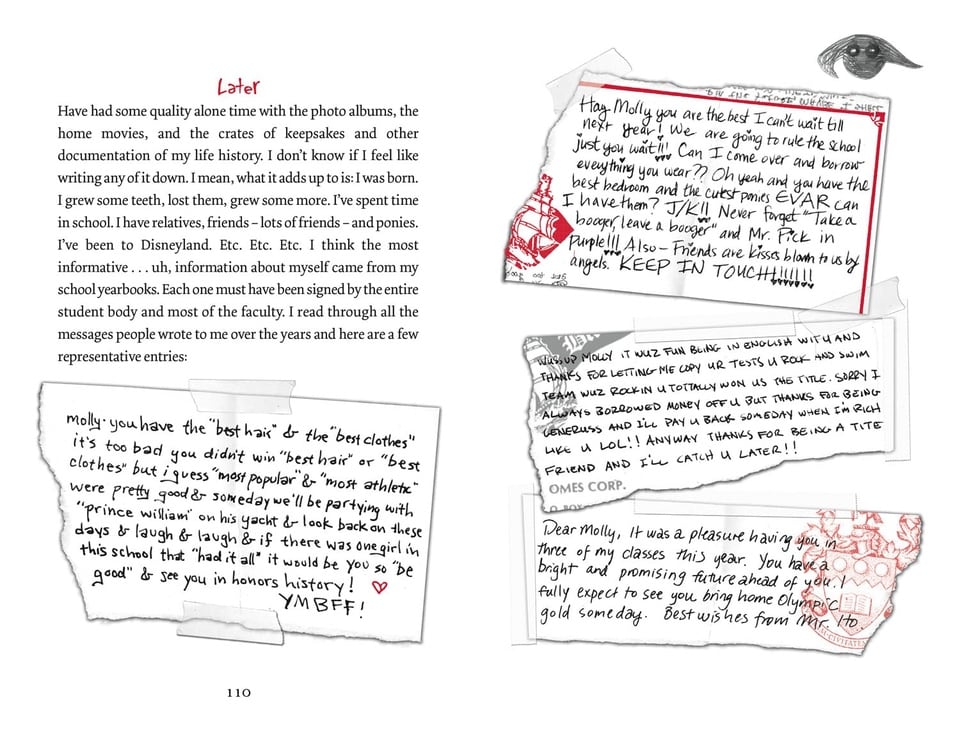 Later
Have had some quality alone time with the photo albums, the
home movies, and the crates of keepsakes and other
documentation of my life history. I don't know if I feel like
writing any of it down. I mean, what it adds up to is: I was born.
I grew some teeth, lost them, grew some more. I've spent time
in school. I have relatives, friends – lots of friends – and ponies.
I've been to Disneyland. Etc. Etc. Etc. I think the most
informative . . . uh, information about myself came from my
school yearbooks. Each one must have been signed by the entire
student body and most of the faculty. I read through all the
messages people wrote to me over the years and here are a few
representative entries:
molly- you have the "best hair" & the "best clothes"
it's too bad you didn't win "best hair" or "best
clothes" but i guess "most popular" & "most athletic"
were pretty good & someday we'll be partying with
"prince william" on his yacht & look back on these
days & laugh & laugh & if there was one girl in
this school that "had it all" it would be you so "be
good" & see you in honors history!
YMBFF!
110
Hay Molly you are the best I can't wait till
next year! We are going to rule the school
just you wait!!! Can I come over and borrow
everything you wear?? Oh yeah and you have the
best bedroom and the cutest ponies EVAR can
I have them? J/K!! Never forget "Take a
booger, leave a booger" and Mr. Pick in
Purple!!! Also – Friends are kisses blown to us by
angels. KEEP IN TOUCH!!!!!!!
WUSSUP MOLLY IT WUZ FUN BEING IN ENGLISH WITH U AND
THANKS FOR LETTING ME COPY UR TESTS U ROCK AND SWIM
TEAM WUZ ROCKIN U TOTTALLY WON US THE TITLE. SORRY I
ALWAYS BORROWED MONEY OFF U BUT THANKS FOR BEING
GENERUSS AND I'LL PAY U BACK SOMEDAY WHEN I'M RICH
LIKE U LOL!! ANYWAY THANKS FOR BEING A TITE
FRIEND AND I'LL CATCH U LATER!!
OMES CORP.
Dear Molly, It was a pleasure having you in
three of my classes this year. You have a
bright and promising future ahead of you. I
fully expect to see you bring home Olympic
gold someday. Best wishes from Mr. Ito